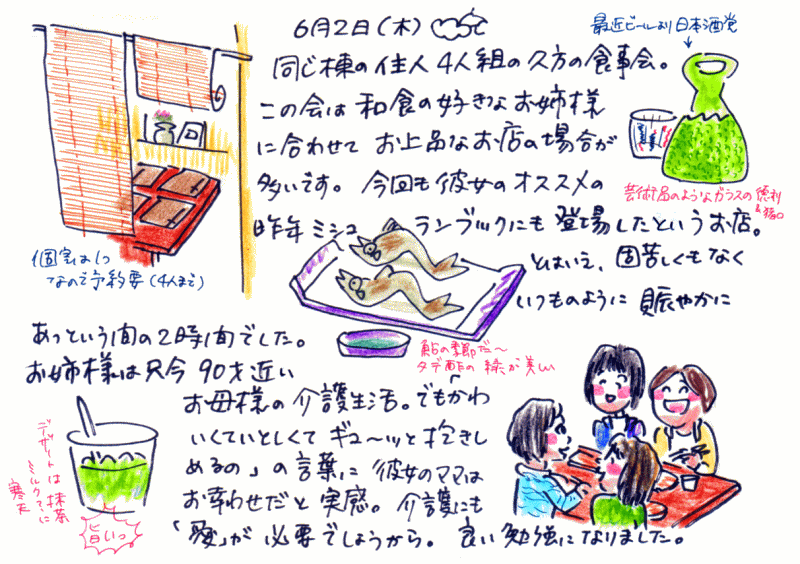 6月2日(木)
最近ビールより日本酒党
同じ棟の住人4人組の久方の食事会。
この会は和食の好きなお姉様
に合わせてお上品なお店の場合が
多いです。今回も彼女のオススメの
芸術品のようなガラスの徳利
昨年ミシュランブックにも登場したというお店。
とはいえ、固苦しくもなく
いつものように賑やかに
個室は1つ
なので予約要(4人まで)
鮎の季節だ〜
タデ酢の緑が美しい
あっという間の2時間でした。
お姉様は只今90才近い
お母様の介護生活。でも「かわ
いくていとしくてギュ〜ッと抱きし
めるの」の言葉に彼女のママは
お幸わせだと実感。介護にも
「愛」が必要でしょうから。良い勉強になりました。
デザートは抹茶
ミルクくずに
寒天
旨いっ